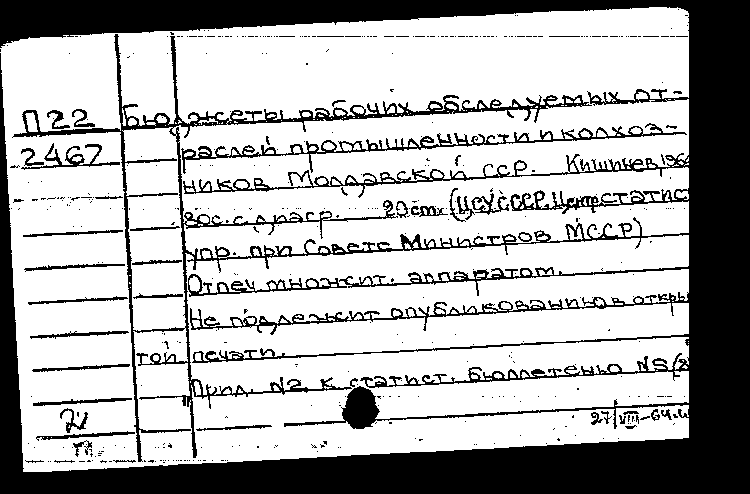 П22 Бюджеты рабочих обследуемых от-
2467 раслей промышленности и колхоз-
ников Молдавской ССР. Кишинев, 196
80с. с диагр. 20 см. (ЦСУ СССР. Центр. статист
упр. при Совете Министров МССР)
Отпеч. множит. аппаратом.
Не подлежит опубликованию в откры
той печати.
Прил. №2 к статист. бюллетеню №5
27/VIII-64